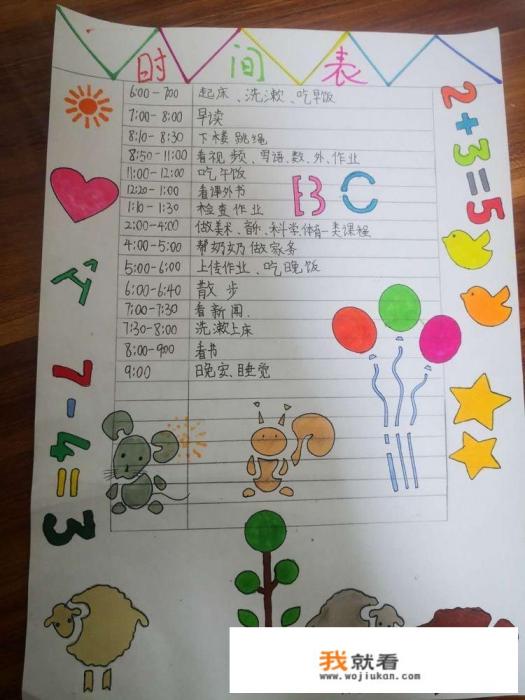 时间表
6:00-7:00 起床、洗漱、吃早饭
7:00-8:00 早读
8:10-8:30 下楼跳绳
8:50-11:00 看视频、写语、数、外、作业
11:00-12:00 吃午饭
12:20-1:00 看课外书
1:10-1:30 检查作业
2:00-4:00 做美术、音乐、科学、体育一类课程
4:00-5:00 帮奶奶做家务
5:00-6:00 上传作业、吃晚饭
6:00-6:40 散步
7:00-7:30 看新闻.
7:30-8:00 洗漱上床
8:00-9:00 看书
9:00 晚安、睡觉
2+3=5
7-4=3
B C
个
我就看
www.wojiukan.com